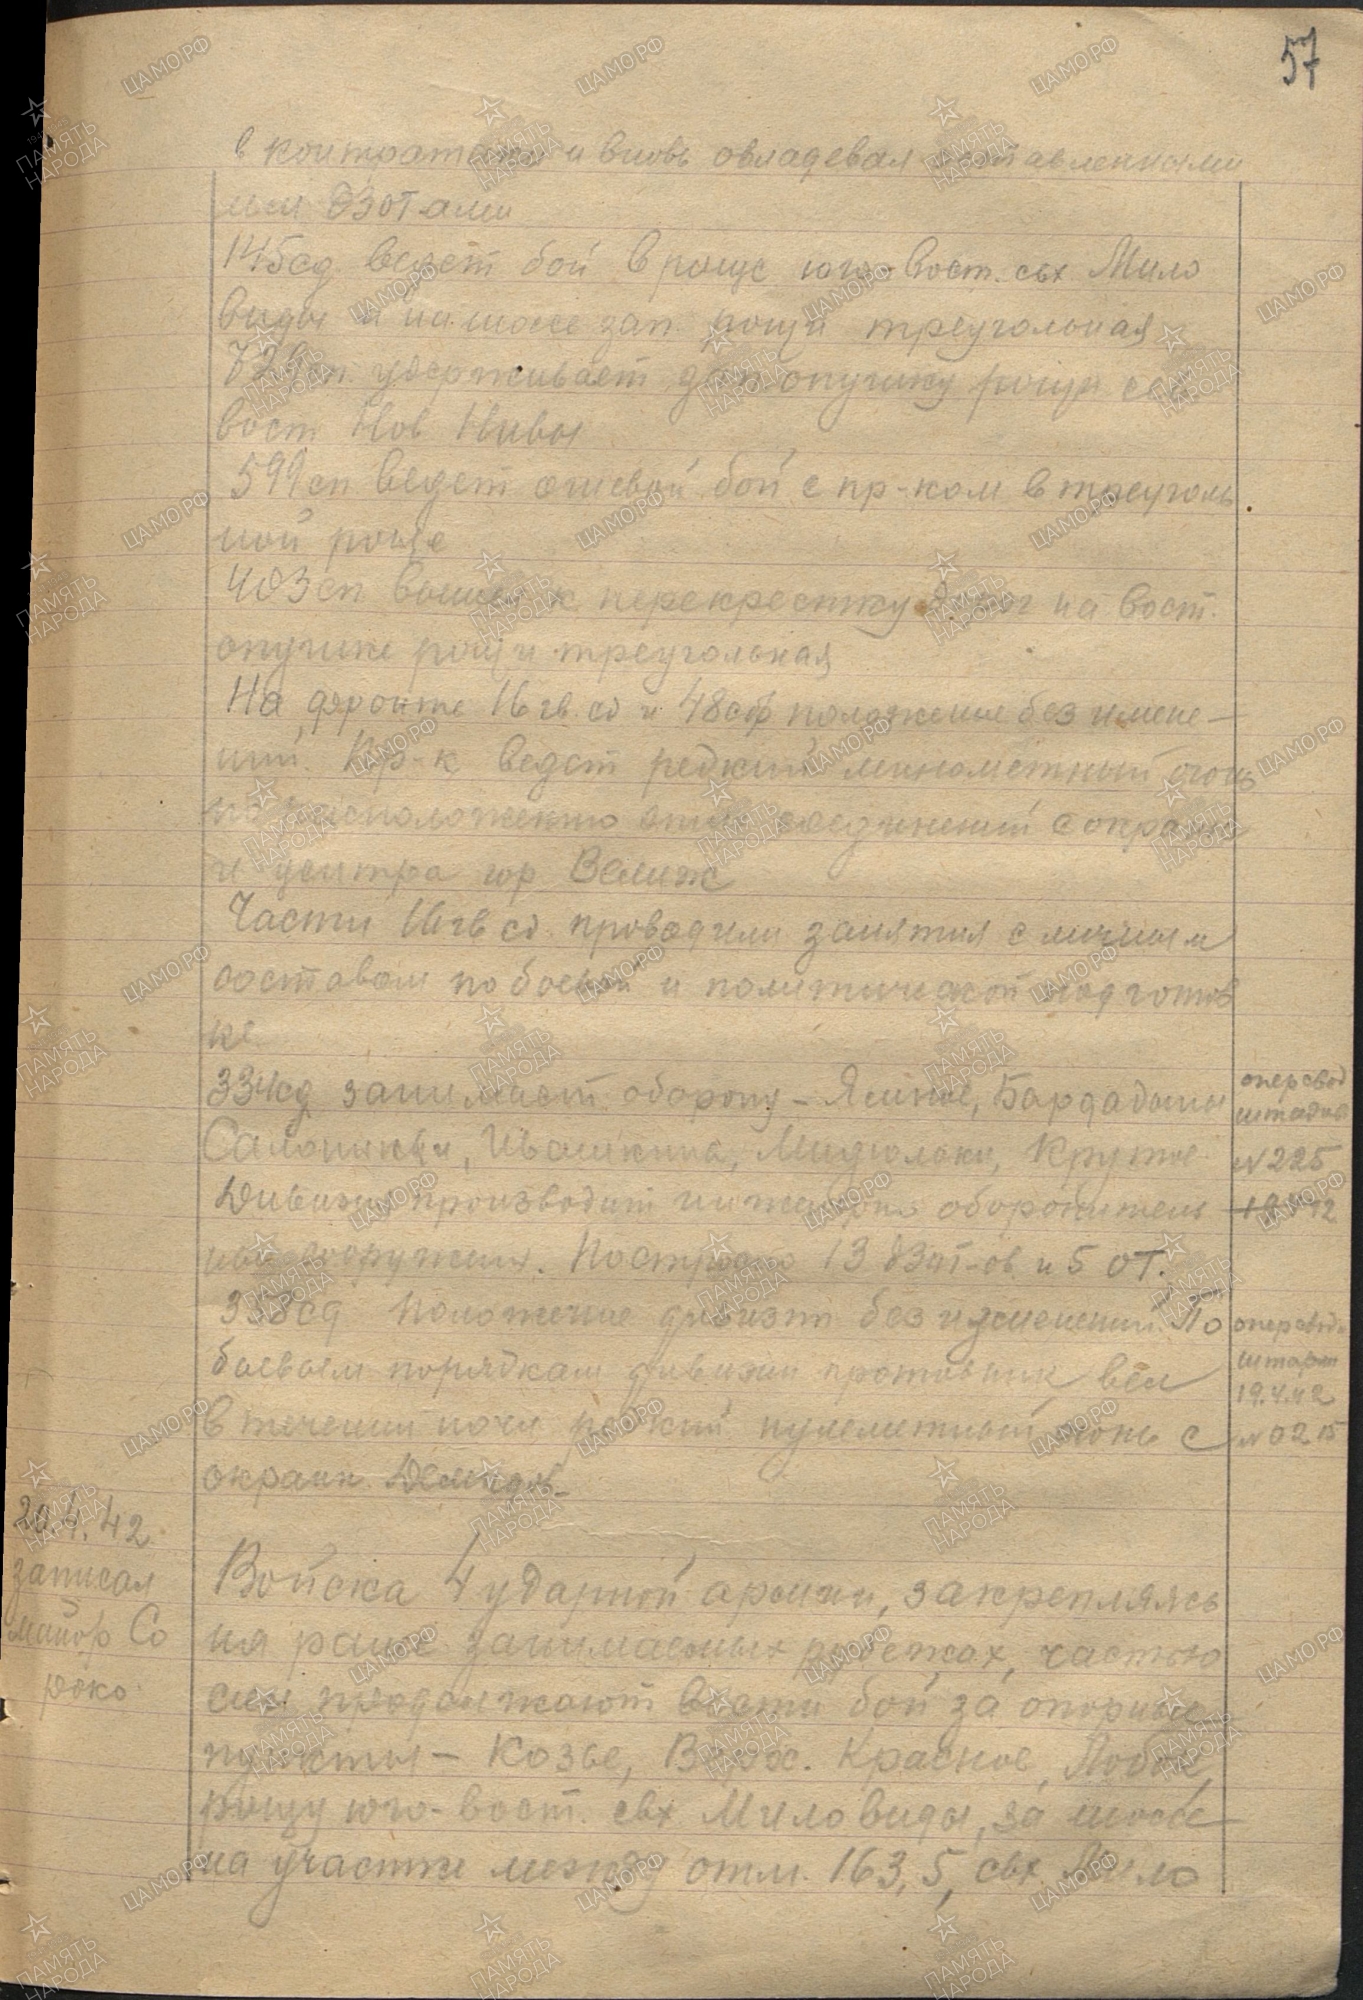 57
в контратаки и вновь овладевал оставленными
ими ДЗОТами
145сд ведет бой в роще юго-вост. свх Мило
виды и на шоссе зап. рощи треугольная
729сп. удерживает зап опушку рощи сев
вост Нов Нивы
599сп ведет огневой бой с пр-ком в треуголь
ной роще
403сп вышел к перекрестку дорог на вост.
опушке рощи треугольная
На фронте 16 гв. сд и 48сбр положение без измене-
ний. Пр-к ведет редкий минометный огонь
по расположению этих соединений с окраин
и центра гор Велиж
Части 16гв сд. проводили занятия с личным
составом по боевой и политической подготов
ке.
334сд занимает оборону -
Ивашкина, Крутое
Дивизия производит оборонитель
ные сооружения. Построено 13 ДЗОТ-ов и 5 ОТ.
358сд Положение дивизии без изменений. По
боевым порядкам дивизии противник вел
в течении ночи редкий пулеметный огонь с
окраин Демидов-
оперсвод
штадив
№225
19.4.42
оперсводк
19.4.42
№0215
20.4.42
записал
майор Со
роко
Войска 4 ударной армии, закрепляясь
на ранее занимаемых рубежах, частью
сил продолжают вести бой за опорные
пункты - Козье, Верх. Красное,
рощу юго-вост. свх Миловиды, за шоссе
на участке между отм. 163,5, свх. Мило